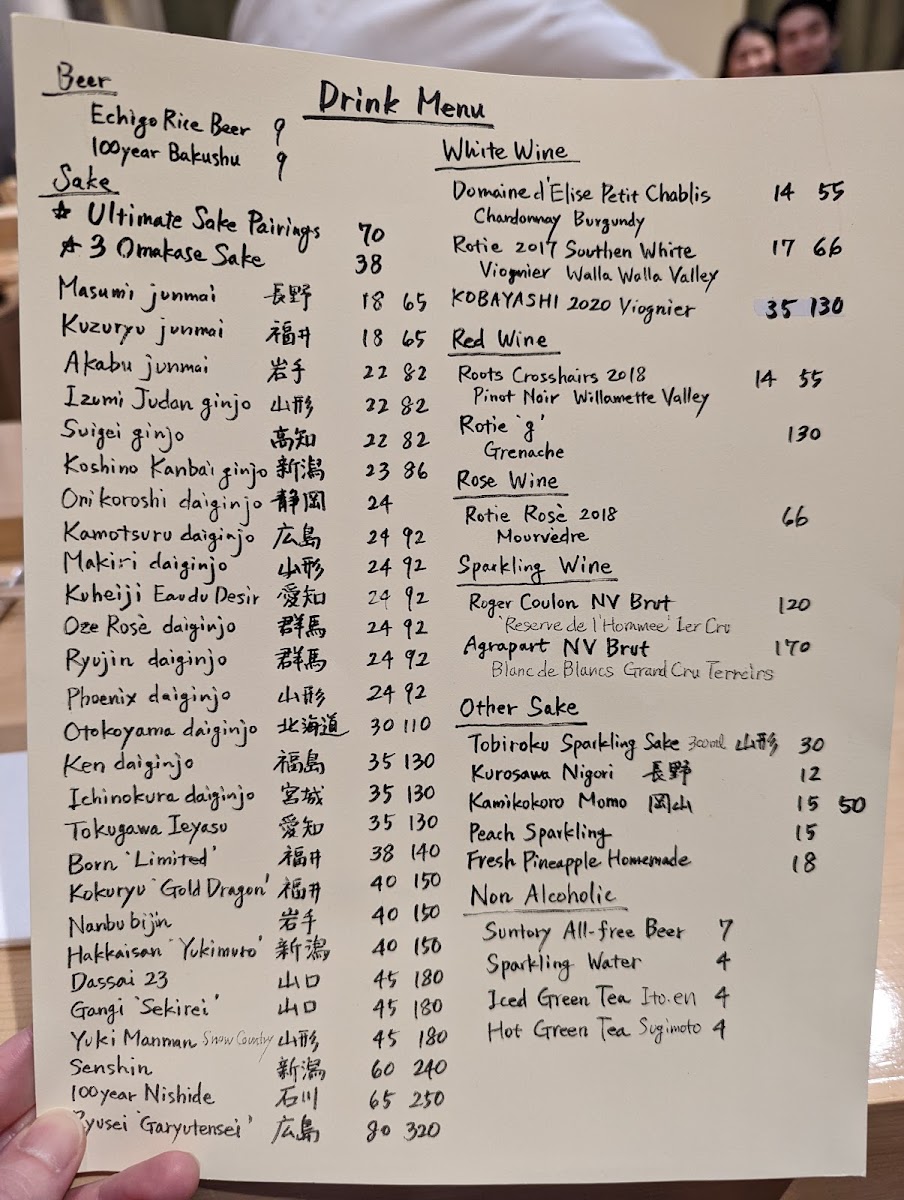 Drink Menu
Beer
Echigo Rice Beer 9
100year Bakushu 9
Sake
☆ Ultimate Sake Pairings 70
☆ 3 Omakase Sake 38
Masumi junmai 長野 18 65
Kuzuryu junmai 福井 18 65
Akabu junmai 岩手 22 82
Izumi Judan ginjo 山形 22 82
Suigei ginjo 高知 22 82
Koshino Kanbai ginjo 新潟 23 86
Onikoroshi daiginjo 静岡 24
Kamotsuru daiginjo 広島 24 92
Makiri daiginjo 山形 24 92
Kuheiji Eau du Desir 愛知 24 92
Oze Rosè daiginjo 群馬 24 92
Ryujin daiginjo 群馬 24 92
Phoenix daiginjo 山形 24 92
Otokoyama daiginjo 北海道 30 110
Ken daiginjo 福島 35 130
Ichinokura daiginjo 宮城 35 130
Tokugawa Ieyasu 愛知 35 130
Born 'Limited' 福井 38 140
Kokuryu 'Gold Dragon' 福井 40 150
Nanbu bijin 岩手 40 150
Hakkaisan 'Yukimuro' 新潟 40 150
Dassai 23 山口 45 180
Gangi 'Sekirei' 山口 45 180
Yuki Manman Snow Country 山形 45 180
Senshin 新潟 60 240
100year Nishide 石川 65 250
Ryusei 'Garyutensei' 広島 80 320
White Wine
Domaine d'Elise Petit Chablis 14 55
Chardonnay Burgundy
Rotie 2017 Southen White 17 66
Viognier Walla Walla Valley
KOBAYASHI 2020 Viognier 35 130
Red Wine
Roots Crosshairs 2018 14 55
Pinot Noir Willamette Valley
Rotie 'g' 130
Grenache
Rose Wine
Rotie Rosè 2018 66
Mourvèdre
Sparkling Wine
Roger Coulon NV Brut 120
'Reserve de l'Hommee' 1er Cru
Agrapart NV Brut 170
Blanc de Blancs Grand Cru Terroirs
Other Sake
Tobiroku Sparkling Sake 300ml 山形 30
Kurosawa Nigori 長野 12
Kamikokoro Momo 岡山 15 50
Peach Sparkling 15
Fresh Pineapple Homemade 18
Non Alcoholic
Suntory All-free Beer 7
Sparkling Water 4
Iced Green Tea Ito.en 4
Hot Green Tea Sugimoto 4